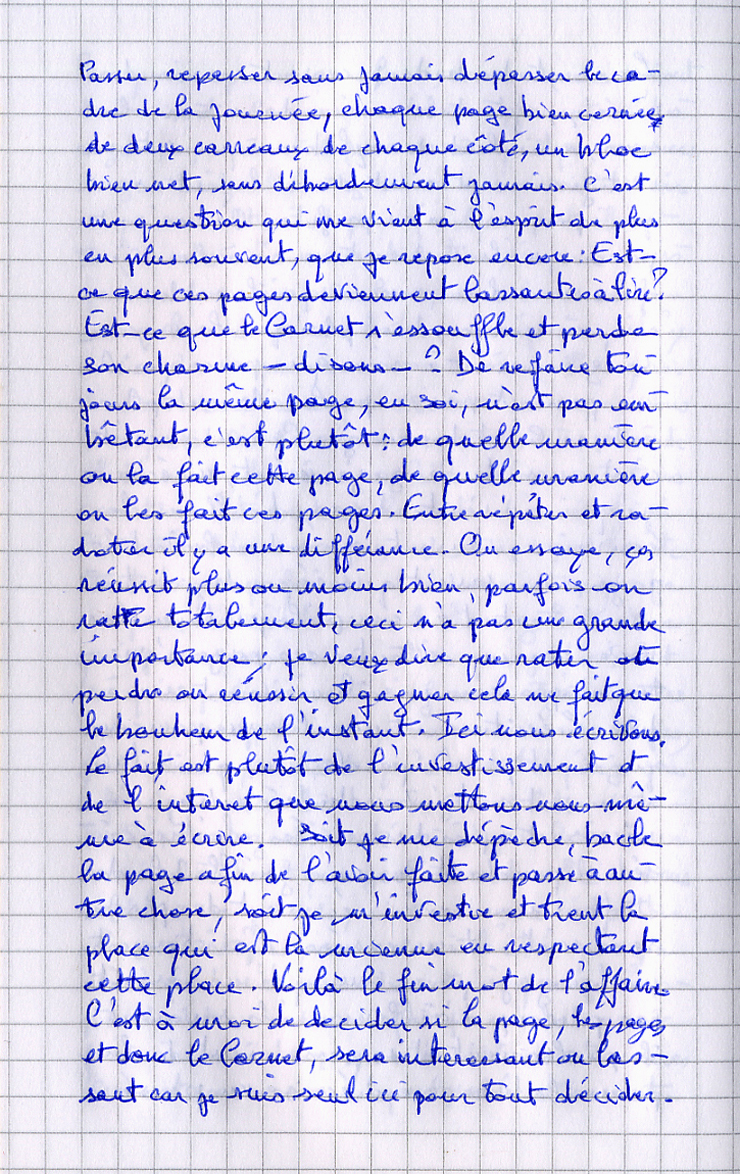 Passer, repasser sans jamais dépasser le ca-
dre de la journée, chaque page bien cernée,
de deux carreaux de chaque côté, un bloc
bien net, sans débordement jamais. C'est
une question qui me vient à l'esprit de plus
en plus souvent, que je repose encore : Est-
ce que ces pages deviennent lassantes à lire ?
Est-ce que le Carnet s'essouffle et perde
son charme – disons – ? De refaire tou-
jours la même page, en soi, n'est pas em-
bêtant, c'est plutôt : de quelle manière
on la fait cette page, de quelle manière
on les fait ces pages. Entre répéter et ra-
doter il y a une différence. On essaye, ça
réussit plus ou moins bien, parfois on
ratte totalement, ceci n'a pas une grande
importance ; je veux dire que rater et
perdre ou réussir et gagner cela ne fait que
le bonheur de l'instant. Ici nous écrivons.
Le fait est plutôt de l'investissement et
de l'interet que nous mettons nous-mê-
me à écrire. Soit je me dépèche, bacle
la page afin de l'avoir faite et passe à au-
tre chose, soit je m'investie et tient la
place qui est la mienne en respectant
cette place. Voilà le fin mot de l'affaire.
C'est à moi de decider si la page, les pages
et donc le Carnet, sera interessant ou las-
sant car je suis seul ici pour tout décider.